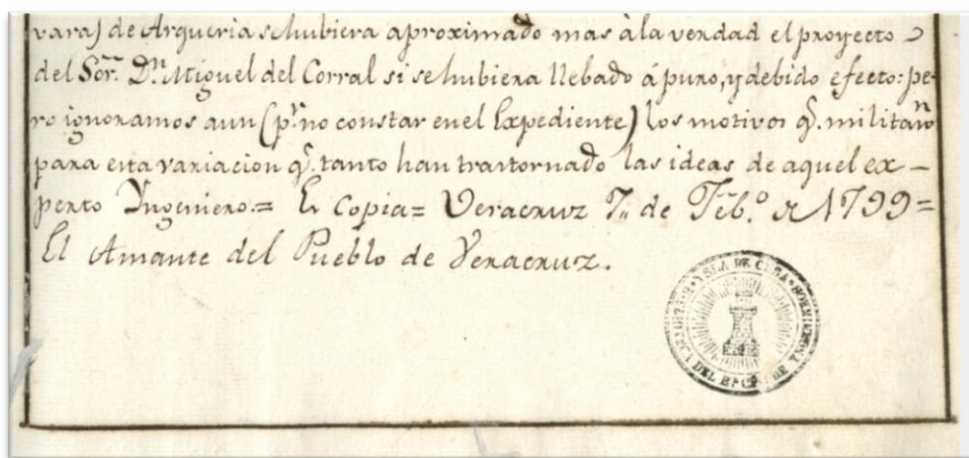 varas de Arqueria se hubiera aproximado mas à la verdad el proyecto
del Sor. Dn. Miguel del Corral si se hubiera llebado á puro, y debido efecto: pe-
ro ignoramos aun (pr. no constar en el Expediente) los motivos q. militan
para esta variacion q. tanto han trastornado las ideas de aquel ex-
perto Yngeniero.= Es Copia= Veracruz 7,, de Feb.o de 1799=
El Amante del Pueblo de Veracruz.
YSLA DE CUBA